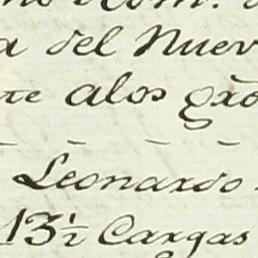 a del Nuev
te alos gxo
Leonardo
13½ Cargas